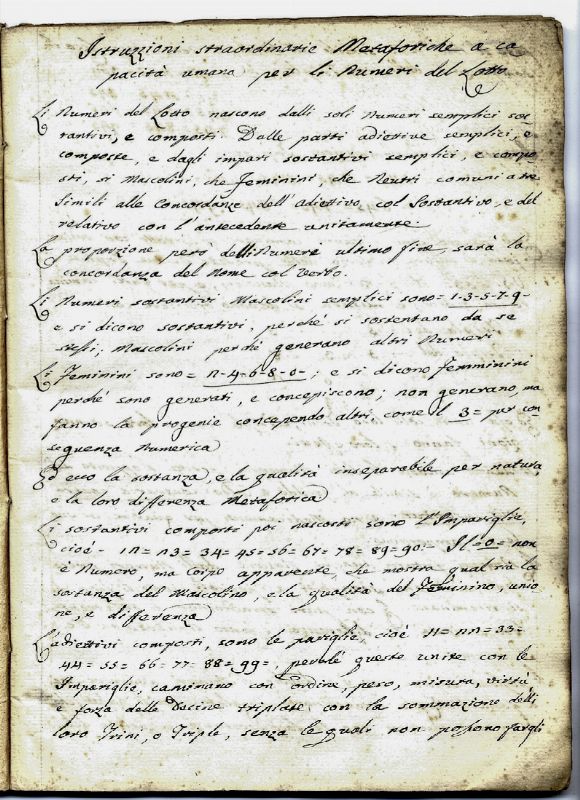 Istruzzioni straordinarie Metaforiche a ca
pacità umana per li Numeri del Lotto
Li Numeri del Lotto nascono dalli soli Numeri semplici sos-
tantivi, e composti Dalle parti adiettive semplici, e
composte, e dagli impari sostantivi semplici, e compo
sti, si Mascolini, che Feminini, che Neutri comuni a tre
Simili alle Concordanze dell'Adiettivo col Sostantivo, e del
relativo con l'antecedente unitamente.
La proporzione però delli Numeri ultimo fine, sarà la
concordanza del Nome col Verbo.
Li Numeri sostantivi Mascolini semplici sono = 1-3-5-7-9-
e si dicono sostantivi, perché si sostentano da se
stessi; Mascolini perché generano altri Numeri
Li Feminini sono = n-4-6-8-0-; e si dicono Femminini
perché sono generati, e concepiscono; non generano, ma
fanno la progenie concependo altri, come l 3 = per con
seguenza Numerica
Ed ecco la sostanza, e la qualità inseparabile per natura,
e la loro differenza Metaforica
Li sostantivi composti poi nascosti sono l'Impariglie,
cioé - 1n = n3 = 34 = 45 = 56 = 67 = 78 = 89 = 90 = Il = 0 = non
è Numero, ma Corpo apparente, che mostra qual sia la
sostanza del Mascolino, e la qualità del Feminino, unio
ne, e differenza
Li Adiettivi composti, sono le pariglie, cioè 11 = nn = 33 =
44 = 55 = 66 = 77 = 88 = 99 =, perché queste unite con le
Impariglie, caminano con ordine, peso, misura, virtù
e forza delle Decine triplate con la sommazione delli
loro Trini, o Triple, senza le quali non possono fargli